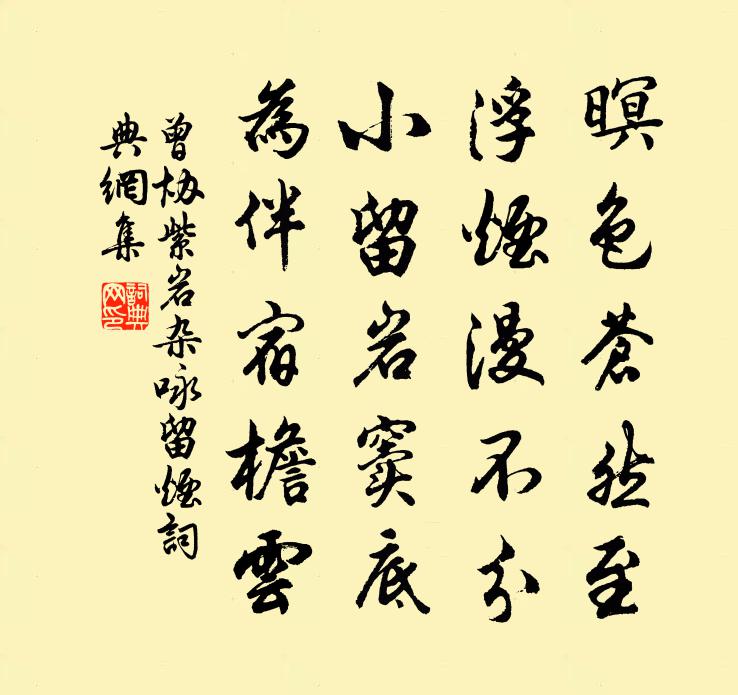 暝色蒼然至
浮煙漫不分
小留岩竇底
為伴宿檐雲
曾協紫岩杂咏留煙詞
典網集
詞典
网印